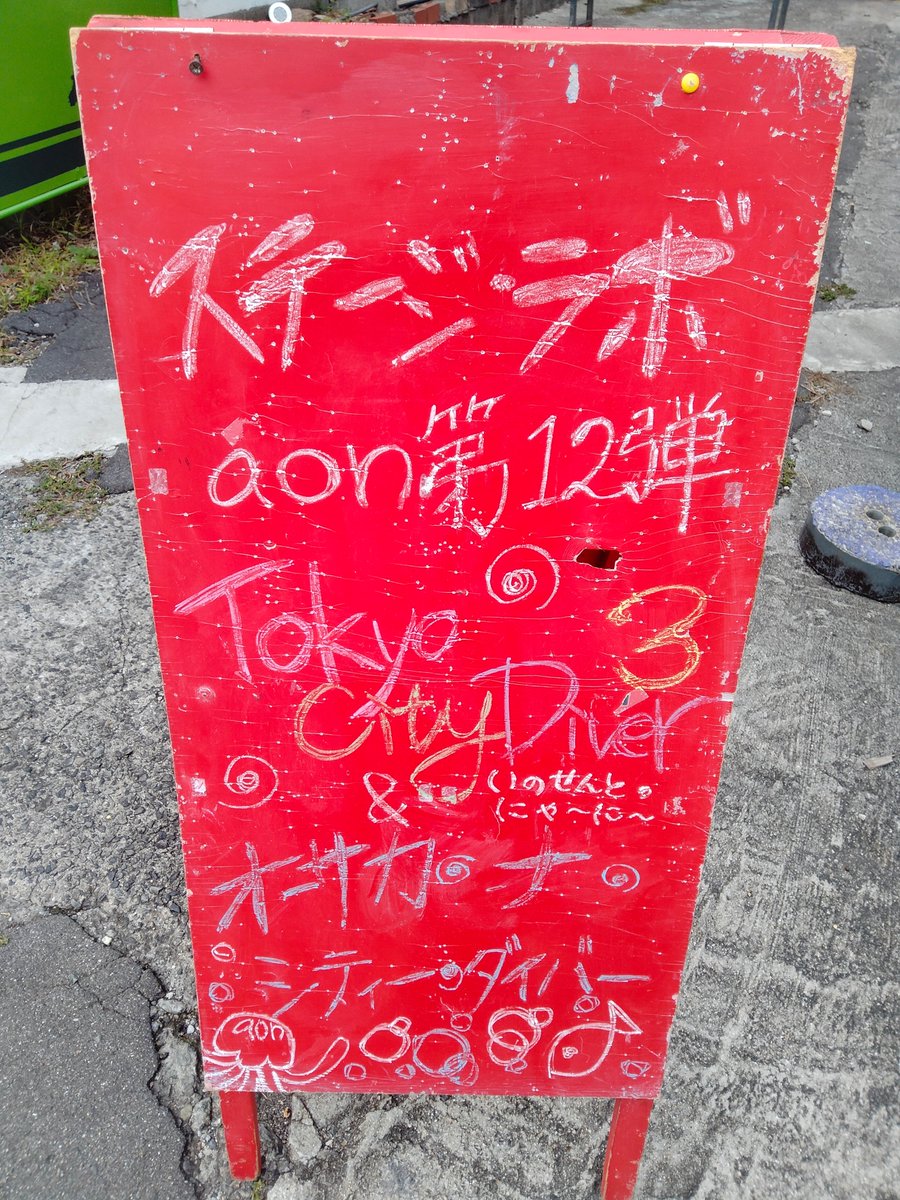 ステージ・ラボ
aon第12弾
Tokyo 3
City Diver
& いのせんと。
にゃ〜に〜
オーサカ・ナ・
シティー・ダイバー
aon